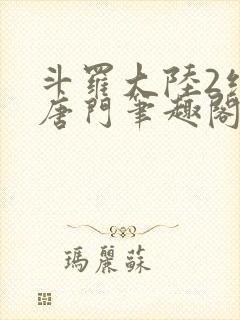 斗羅大陸2絕
唐門筆趣閣
瑪麗蘇